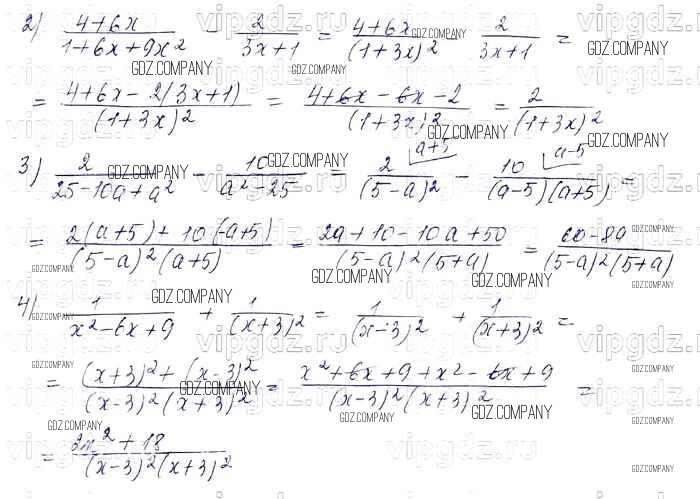 2) (4+6x)/(1+6x+9x²) - 2/(3x+1) = (4+6x)/(1+3x)² - 2/(3x+1) =
= (4+6x-2(3x+1))/(1+3x)² = (4+6x-6x-2)/(1+3x)² = 2/(1+3x)²
3) 2/(25-10a+a²) - 10/(a²-25) = 2/(5-a)² ⌊a+5 - 10/((a-5)(a+5)) ⌊a-5 =
= (2(a+5)+10(-a+5))/((5-a)²(a+5)) = (2a+10-10a+50)/((5-a)²(5+a)) = (60-8a)/((5-a)²(5+a))
4) 1/(x²-6x+9) + 1/(x+3)² = 1/(x-3)² + 1/(x+3)² =
= ((x+3)²+(x-3)²)/((x-3)²(x+3)²) = (x²+6x+9+x²-6x+9)/((x-3)²(x+3)²) =
= (2x²+18)/((x-3)²(x+3)²)
GDZ.COMPANY
vipgdz.ru